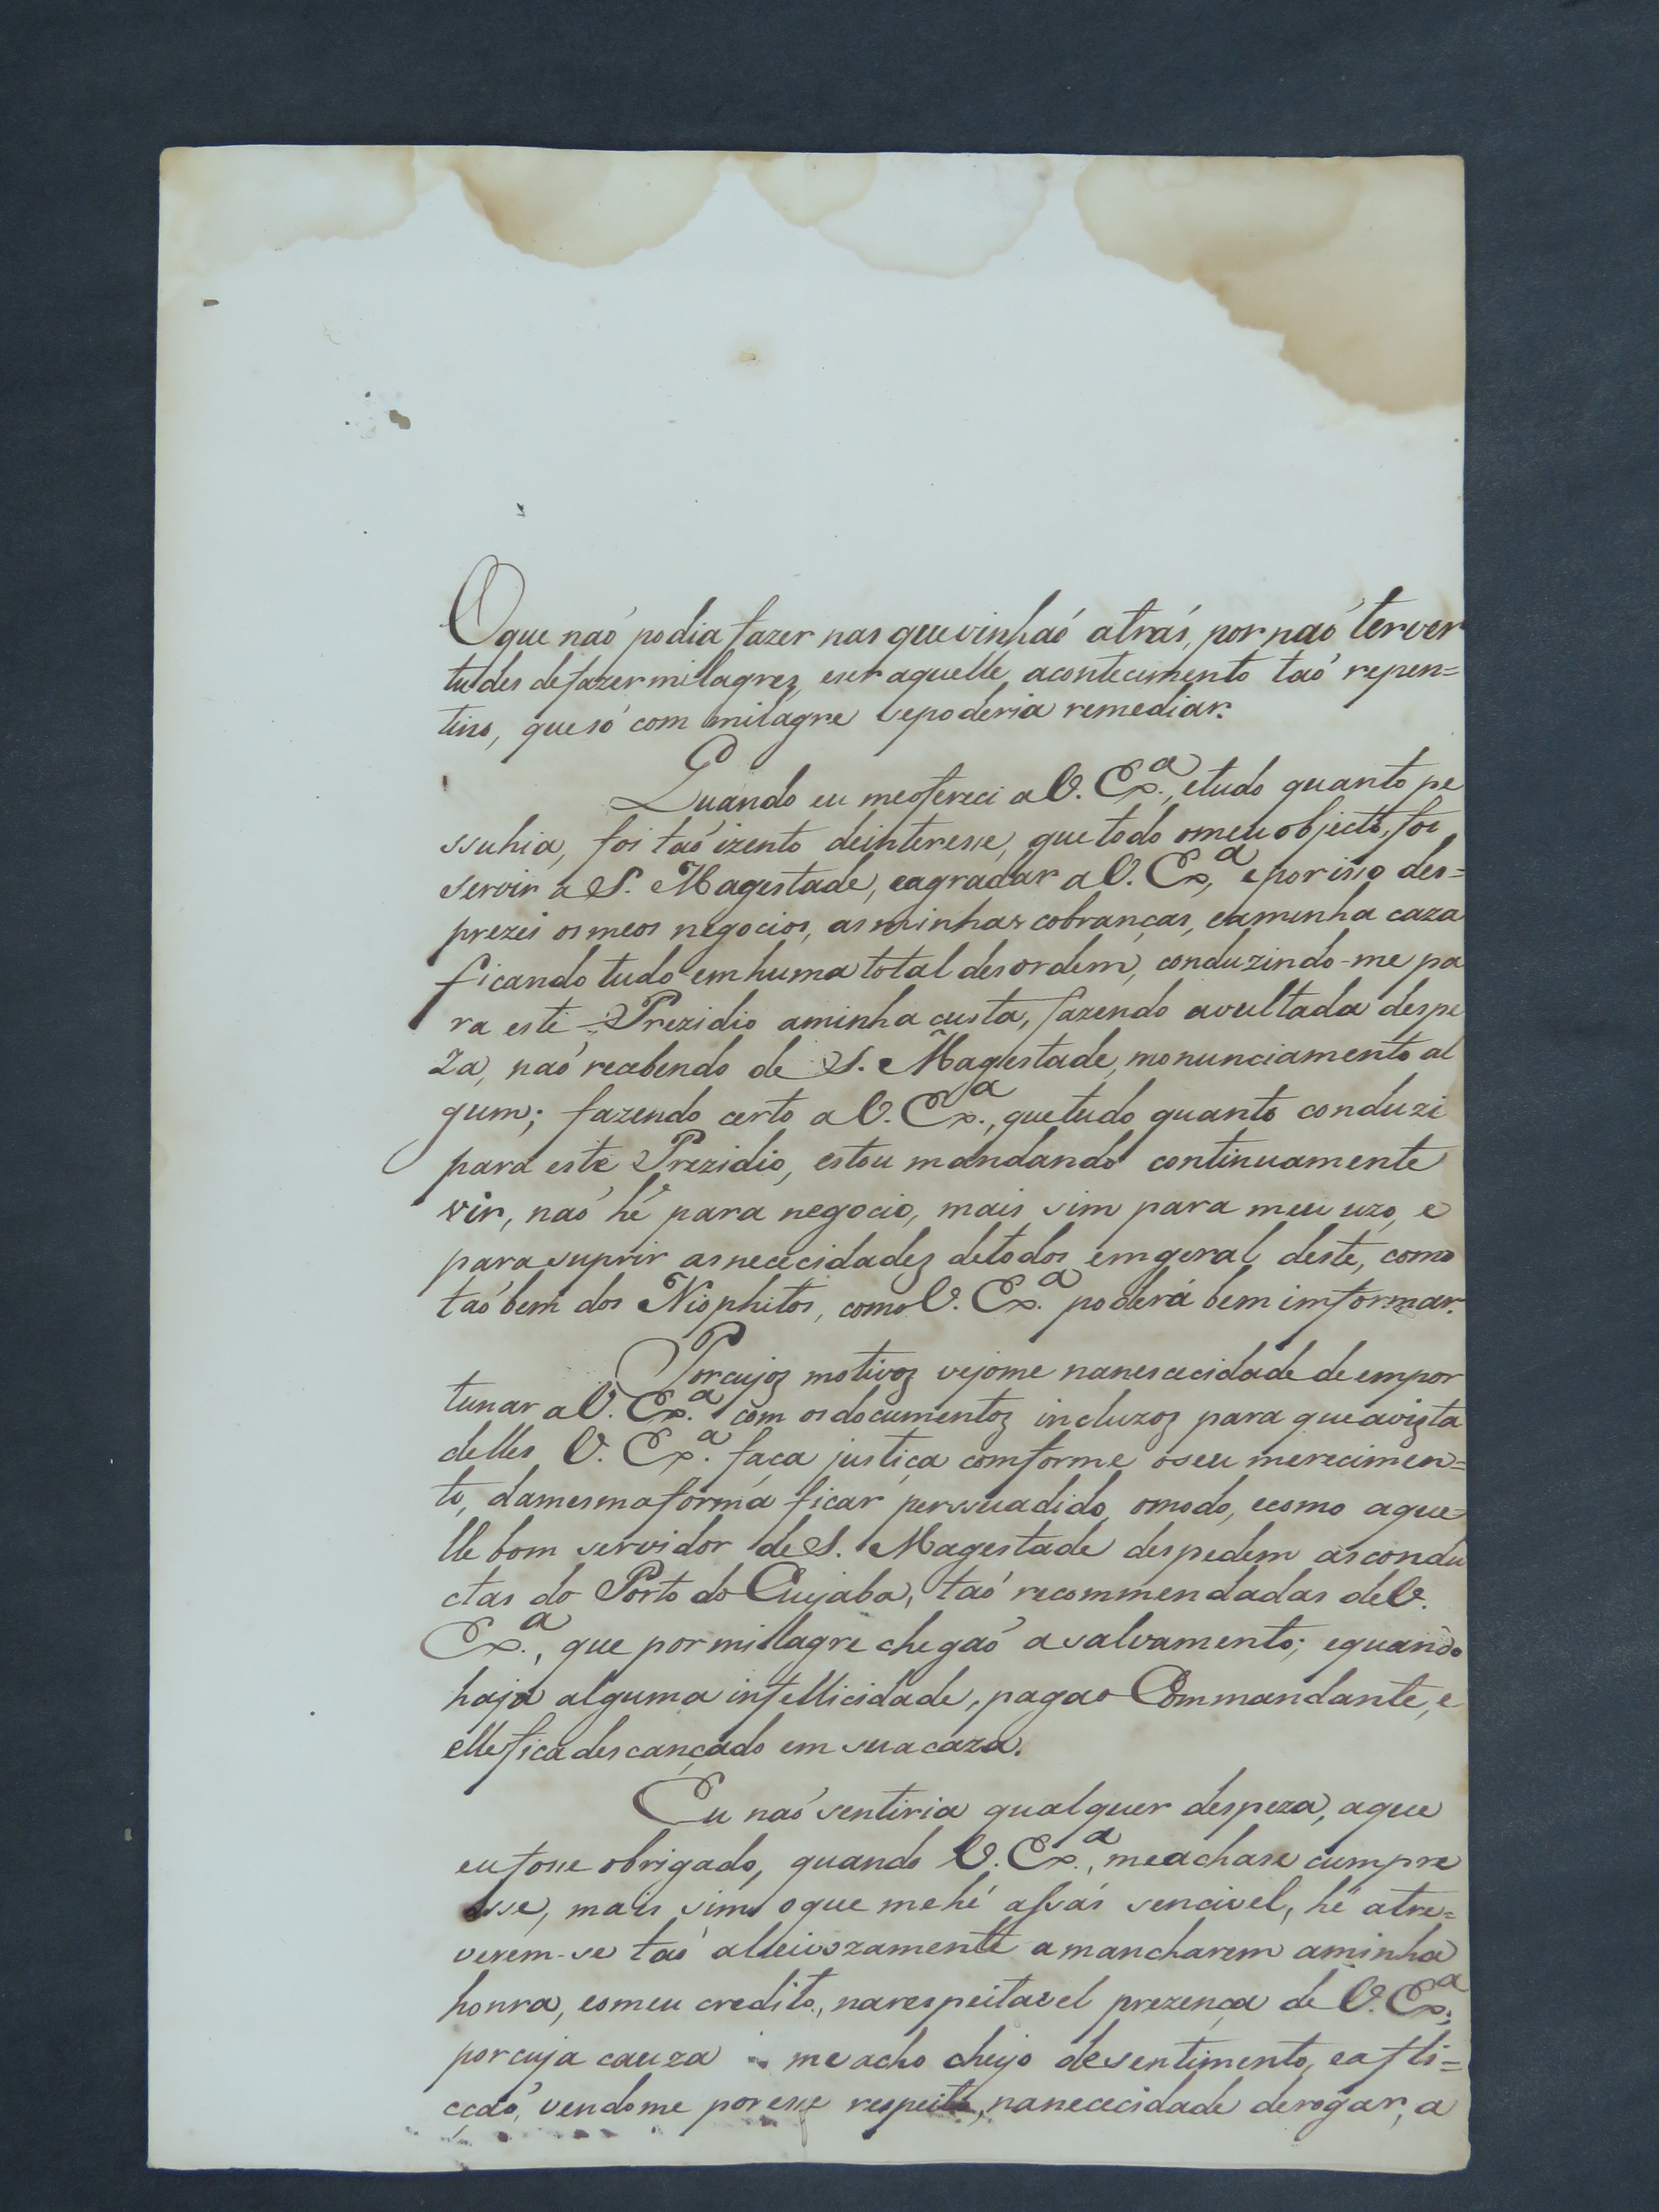 O que naó podia fazer nas que vinhaó atrás, por naó ter ver
tudes de fazer milagrez, e ser aquelle acontecimento taó repen=
tino, que só com milagre se poderia remediar.
Quando eu me offereci a V. Ex.ª, e tudo quanto pe
ssuhia, foi taó izento de interesse, que todo o meu objecto, foi
servir a S. Magestade, e agradar a V. Ex.ª, e por isso des=
prezei os meos negocios, as minhas cobranças, e a minha caza
ficando tudo em huma total desordem, conduzindo-me pa
ra este Prezidio a minha custa, fazendo avultada despe
za, naó recebendo de S. Magestade, monunciamento al
gum; fazendo certo a V. Ex.ª, que tudo quanto conduzi
para este Prezidio, estou mandando continuamente
vir, naó hé para negocio, mais sim para meu uzo, e
para suprir as nececidadez de todos em geral deste, como
taó bem dos Niophitos, como V. Ex.ª poderá bem imformar.
Por cujoz motivoz vejome na nescecidade de empor
tunar a V. Ex.ª com os documentoz incluzoz para que a vizta
delles V. Ex.ª faca justiça comforme o seu merecimen=
to, da mesma forma ficar persuadido, o modo, e como aque=
lle bom servidor de S. Magestade despedem as condu
ctas do Porto do Cuyaba, taó recommendadas de V.
Ex.ª, que por millagre chegaó a salvamento; e quando
haja alguma infellicidade, paga o Commandante, e
elle fica descançado em sua caza.
Eu naó sentiria qualquer despeza, a que
eu fosse obrigado, quando V. Ex.ª, me achase cumpre
sse, mais sim o que me hé assás sencivel, hé atre=
verem-se taó alleivozamente a mancharem a minha
honra, e o meu credito, na respeitavel prezença de V. Ex.ª,
por cuja cauza me acho cheyo de sentimento, e afli=
çcaó, vendome por esse respeito, na nececidade de rogar, a